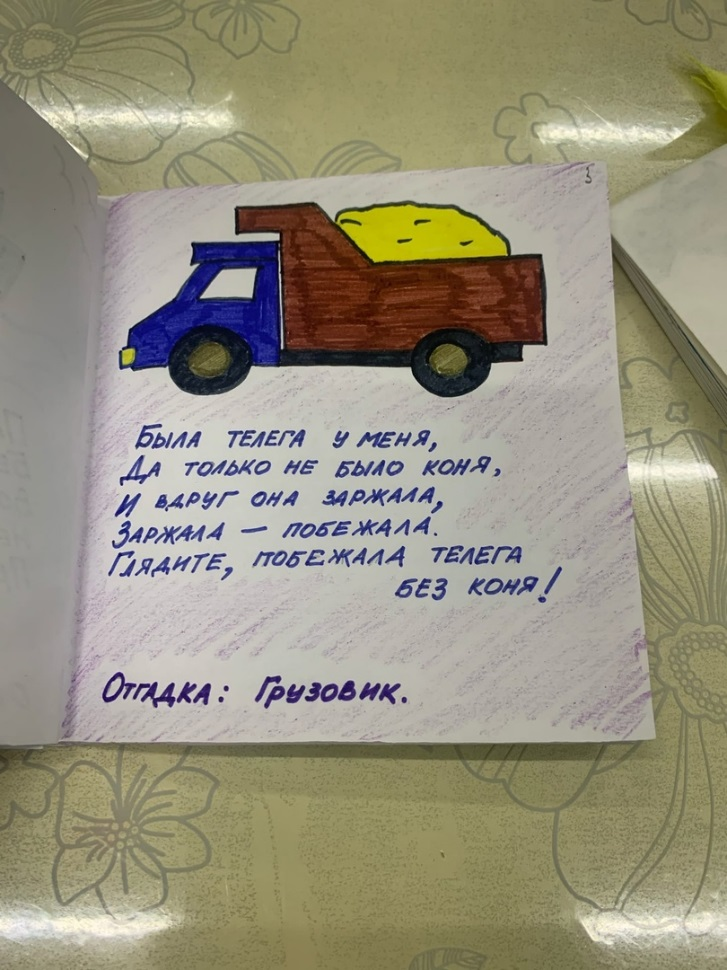 Была телега у меня,
Да только не было коня,
И вдруг она заржала,
Заржала — побежала.
Глядите, побежала телега
без коня!
Отгадка: Грузовик.